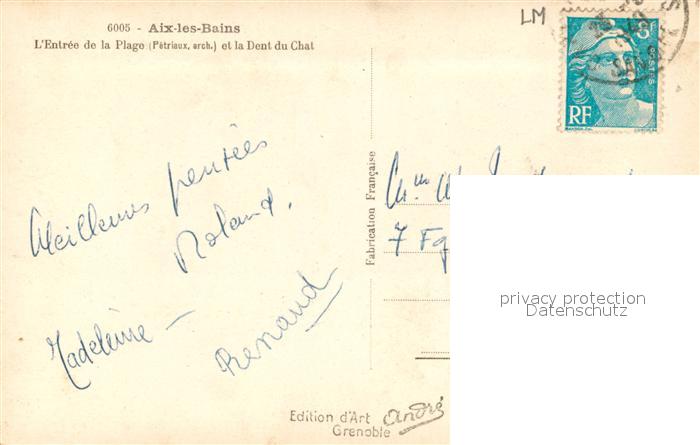 6005 - Aix-les-Bains
L'Entrée de la Plage (Pétriaux, arch.) et la Dent du Chat
LM
8F
POSTES
RF
Meilleures pensées
Roland.
Madeleine -
Renaud
Fabrication Française
7 Fg
privacy protection
Datenschutz
Edition d'Art André
Grenoble